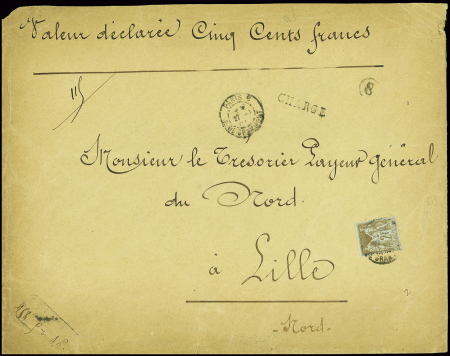 Valeur déclarée Cinq Cents francs
8
CHARGÉ
PARIS
Monsieur le Tresorier Payeur général
du Nord.
à Lille
-Nord-